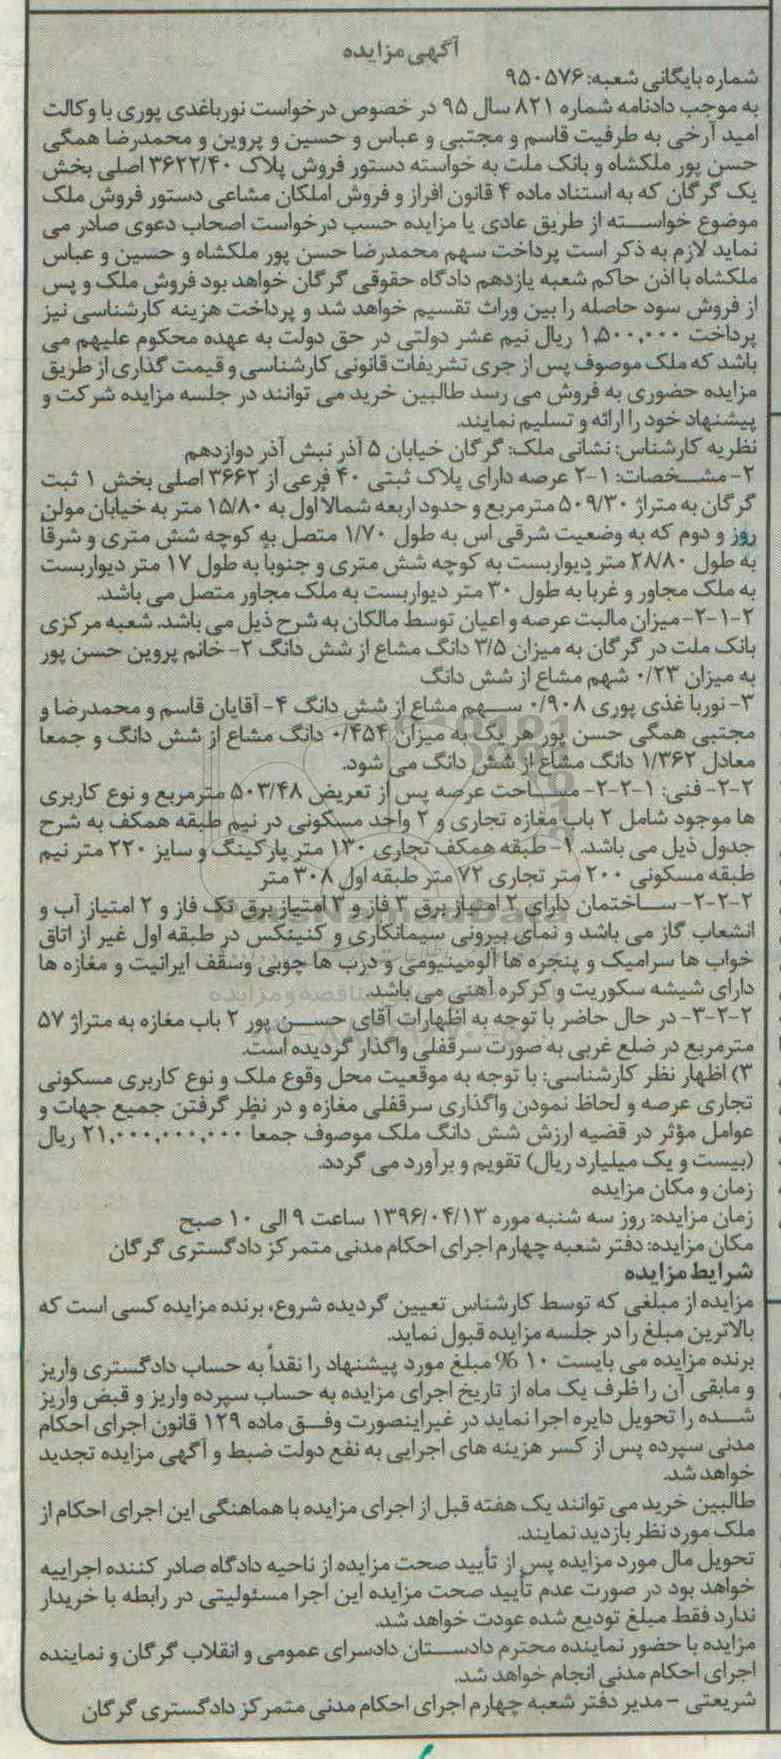 آگهی مزایده
شماره بایگانی شعبه: ۹۵۰۵۷۶
به موجب دادنامه شماره ۸۲۱ سال ۹۵ در خصوص درخواست نورباغدی پوری با وکالت
امید آرخی به طرفیت قاسم و مجتبی و عباس و حسین و پروین و محمدرضا همگی
حسن پور ملکشاه و بانک ملت به خواسته دستور فروش پلاک ۳۶۲۲/۴۰ اصلی بخش
یک گرگان که به استناد ماده ۴ قانون افراز و فروش املاکان مشاعی دستور فروش ملک
موضوع خواسته از طریق عادی یا مزایده حسب درخواست اصحاب دعوی صادر می
نماید لازم به ذکر است پرداخت سهم محمدرضا حسن پور ملکشاه و حسین و عباس
ملکشاه با اذن حاکم شعبه یازدهم دادگاه حقوقی گرگان خواهد بود فروش ملک و پس
از فروش سود حاصله را بین وراث تقسیم خواهد شد و پرداخت هزینه کارشناسی نیز
پرداخت ۱,۵۰۰,۰۰۰ ریال نیم عشر دولتی در حق دولت به عهده محکوم علیهم می
باشد که ملک موصوف پس از جری تشریفات قانونی کارشناسی و قیمت گذاری از طریق
مزایده حضوری به فروش می رسد طالبین خرید می توانند در جلسه مزایده شرکت و
پیشنهاد خود را ارائه و تسلیم نمایند.
نظریه کارشناس: نشانی ملک: گرگان خیابان ۵ آذر نبش آذر دوازدهم
۲- مشخصات: ۱-۲ عرصه دارای پلاک ثبتی ۴۰ فرعی از ۳۶۶۲ اصلی بخش ۱ ثبت
گرگان به متراژ ۵۰۹/۳۰ مترمربع و حدود اربعه شمالا اول به ۱۵/۸۰ متر به خیابان مولن
روز و دوم که به وضعیت شرقی اس به طول ۱/۷۰ متصل به کوچه شش متری و شرقاً
به طول ۲۸/۸۰ متر دیواربست به کوچه شش متری و جنوباً به طول ۱۷ متر دیواربست
به ملک مجاور و غربا به طول ۳۰ متر دیواربست به ملک مجاور متصل می باشد.
۲-۱-۲- میزان مالیت عرصه و اعیان توسط مالکان به شرح ذیل می باشد. شعبه مرکزی
بانک ملت در گرگان به میزان ۳/۵ دانگ مشاع از شش دانگ ۲- خانم پروین حسن پور
به میزان ۰/۲۳ شهم مشاع از شش دانگ
۳- نوربا غذی پوری ۰/۹۰۸ سهم مشاع از شش دانگ ۴- آقایان قاسم و محمدرضا و
مجتبی همگی حسن پور هر یک به میزان ۰/۴۵۴ دانگ مشاع از شش دانگ و جمعا
معادل ۱/۳۶۲ دانگ مشاع از شش دانگ می شود.
۲-۲- فنی: ۱-۲-۲- مساحت عرصه پس از تعریض ۵۰۳/۴۸ مترمربع و نوع کاربری
ها موجود شامل ۲ باب مغازه تجاری و ۲ واحد مسکونی در نیم طبقه همکف به شرح
جدول ذیل می باشد. ۱- طبقه همکف تجاری ۱۳۰ متر پارکینگ و سایز ۲۲۰ متر نیم
طبقه مسکونی ۲۰۰ متر تجاری ۷۲ متر طبقه اول ۳۰۸ متر
۲-۲-۲- ساختمان دارای ۲ امتیاز برق ۳ فاز و ۳ امتیاز برق تک فاز و ۲ امتیاز آب و
انشعاب گاز می باشد و نمای بیرونی سیمانکاری و کنیتکس در طبقه اول غیر از اتاق
خواب ها سرامیک و پنجره ها آلومینیومی و درب ها چوبی وسقف ایرانیت و مغازه ها
دارای شیشه سکوریت و کرکره آهنی می باشد.
۳-۲-۲- در حال حاضر با توجه به اظهارات آقای حسن پور ۲ باب مغازه به متراژ ۵۷
مترمربع در ضلع غربی به صورت سرقفلی واگذار گردیده است.
۳) اظهار نظر کارشناسی: با توجه به موقعیت محل وقوع ملک و نوع کاربری مسکونی
تجاری عرصه و لحاظ نمودن واگذاری سرقفلی مغازه و در نظر گرفتن جمیع جهات و
عوامل مؤثر در قضیه ارزش شش دانگ ملک موصوف جمعاً ۲۱,۰۰۰,۰۰۰,۰۰۰ ریال
(بیست و یک میلیارد ریال) تقویم و برآورد می گردد.
زمان و مکان مزایده
زمان مزایده: روز سه شنبه موره ۱۳۹۶/۰۴/۱۳ ساعت ۹ الی ۱۰ صبح
مکان مزایده: دفتر شعبه چهارم اجرای احکام مدنی متمرکز دادگستری گرگان
شرایط مزایده
مزایده از مبلغی که توسط کارشناس تعیین گردیده شروع، برنده مزایده کسی است که
بالاترین مبلغ را در جلسه مزایده قبول نماید.
برنده مزایده می بایست ۱۰ % مبلغ مورد پیشنهاد را نقداً به حساب دادگستری واریز
و مابقی آن را ظرف یک ماه از تاریخ اجرای مزایده به حساب سپرده واریز و قبض واریز
شده را تحویل دایره اجرا نماید در غیراینصورت وفق ماده ۱۲۹ قانون اجرای احکام
مدنی سپرده پس از کسر هزینه های اجرایی به نفع دولت ضبط و آگهی مزایده تجدید
خواهد شد.
طالبین خرید می توانند یک هفته قبل از اجرای مزایده با هماهنگی این اجرای احکام از
ملک مورد نظر بازدید نمایند.
تحویل مال مورد مزایده پس از تأیید صحت مزایده از ناحیه دادگاه صادر کننده اجراییه
خواهد بود در صورت عدم تأیید صحت مزایده این اجرا مسئولیتی در رابطه با خریدار
ندارد فقط مبلغ تودیع شده عودت خواهد شد.
مزایده با حضور نماینده محترم دادستان دادسرای عمومی و انقلاب گرگان و نماینده
اجرای احکام مدنی انجام خواهد شد.
شریعتی - مدیر دفتر شعبه چهارم اجرای احکام مدنی متمرکز دادگستری گرگان